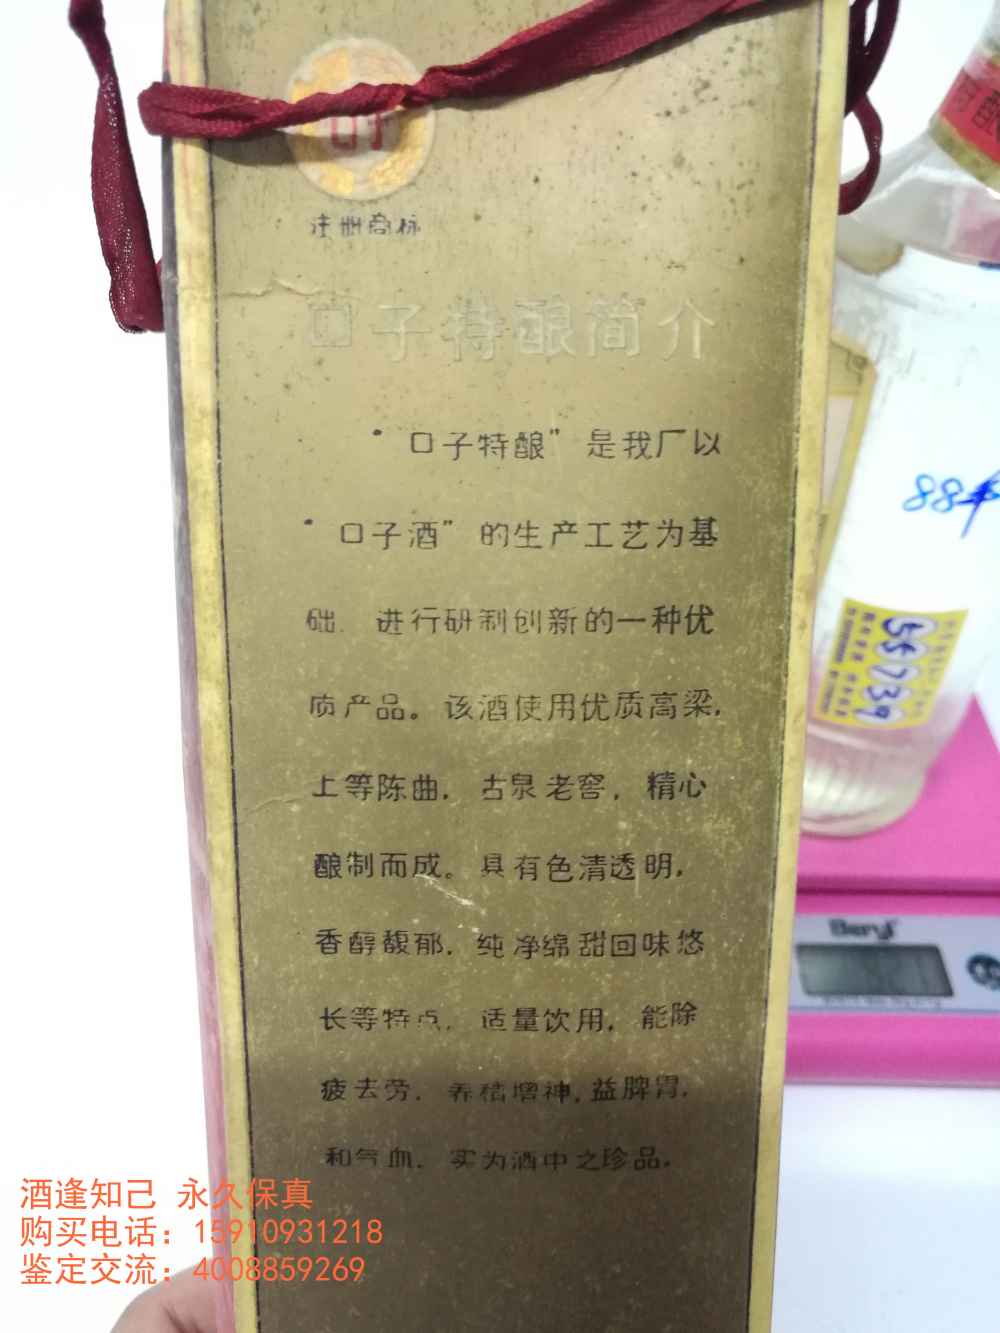 注册商标
口子特酿简介
“口子特酿”是我厂以
“口子酒”的生产工艺为基
础.进行研制创新的一种优
质产品。该酒使用优质高粱,
上等陈曲,古泉老窖,精心
酿制而成。具有色清透明,
香醇馥郁,纯净绵甜回味悠
长等特点,适量饮用,能除
疲去劳,养精增神,益脾胃,
和气血,实为酒中之珍品.
88年
557739
Beryl
酒逢知己 永久保真
购买电话：15910931218
鉴定交流：4008859269